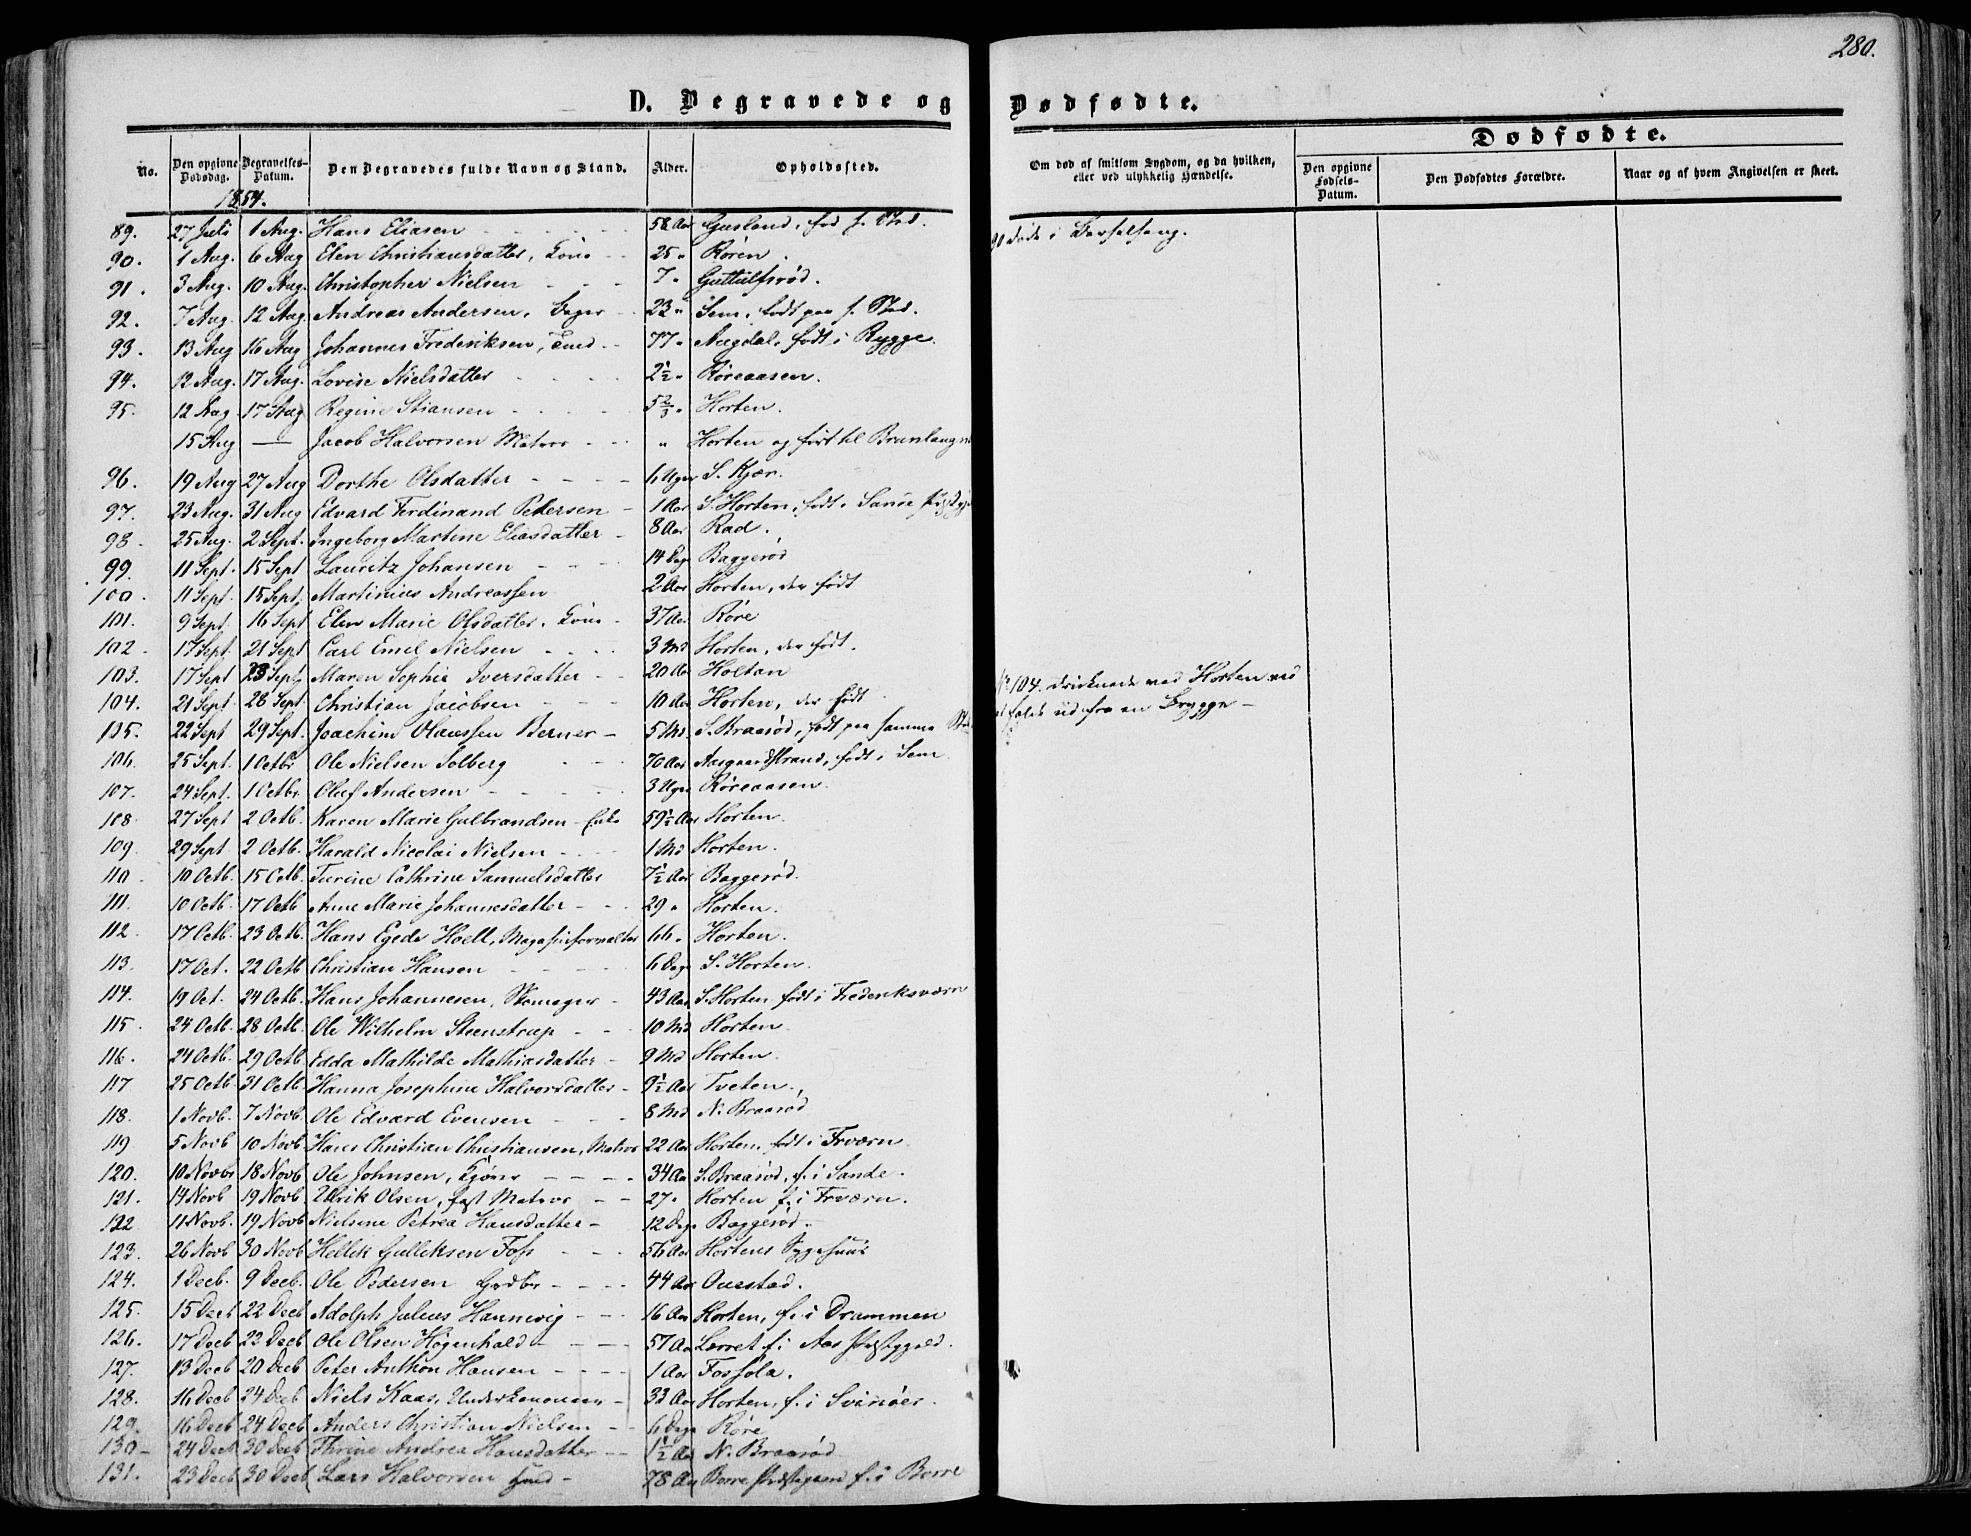 280.
D. Begravede og Dødfødte.
Dødfødte.
No. Den opgivne Dødsdag. Begravelses-Datum. Den Begravedes fulde Navn og Stand. Alder. Opholdssted. Om død af smitsom Sygdom, og da hvilken, eller ved ulykkelig Hændelse. Den opgivne Fødsels-Datum. Den Dødfødtes Forældre. Naar og af hvem Angivelsen er skeet.
1854.
89. 27 Juli 1 Aug. Hans Eliasen 58 Aar
90. 1 Aug. 6 Aug Elen Christiansdatter, Kone 25 " Røren. 90 død i Barselseng.
91. 3 Aug. 10 Aug. Christopher Nielsen 7 " Guttulfsrød.
92. 7 Aug. 12 Aug. Andreas Andersen, Bager 23 " Sem, født paa s. Sted.
93. 13 Aug 16 Aug Johannes Frederiksen, 77 " Augdal, født i Rygge.
94. 12 Aug. 17 Aug. Lovise Nielsdatter 2½ " Røreaasen.
95. 12 Aug 17 Aug Regine Stiansen 5⅔ " Horten.
15 Aug — Jacob Halvorsen Matros " Horten og ført til Brunlaugnæs
96. 19 Aug 27 Aug Dorthe Olsdatter 6 Uger S. Kjær.
97. 23 Aug. 31 Aug Edvard Ferdinand Petersen 1 Aar S. Horten, født i Sande
98. 25 Aug. 2 Sept. Ingeborg Martine Eliasdatter 8 Aar Rad.
99. 11 Sept. 15 Sept Lauritz Johansen 14 Dage Baggerød
100. 11 Sept. 15 Sept. Martinius Andreassen 2 Aar Horten, der født
101. 9 Sept. 16 Sept Elen Marie Olsdatter, Kone 37 Aar Røre
102. 17 Sept. 21 Sept Carl Emil Nielsen 3 Md Horten, der født.
103. 17 Sept 23 Sept Maren Sophie Iversdatter 20 Aar Holtan
104. 21 Sept. 28 Sept Christian Jacobsen 10 Aar Horten, der født No 104. druknede ved Horten ved
105. 22 Sept 29 Sept. Joachim Olaussen Berner 5 Md. S. Braarød, født paa samme Sted at falde ud fra en Brygge
106. 25 Sept. 1 Octbr Ole Nielsen Solberg 70 Aar Aasgaardstrand, født i Sem
107. 24 Sept. 1 Octbr Oluf Andersen 3 Uger Røreaasen.
108. 27 Sept 2 Octb. Karen Marie Gulbrandsen Enke 59½ Aar Horten.
109. 29 Sept 2 Octb. Harald Nicolai Nielsen 1 Md Horten.
110. 10 Octb. 15 Octb. Turine Cathrine Samuelsdatter 7½ Aar Baggerød.
111. 10 Octb. 17 Octb Anne Marie Johannesdatter 29 " Horten.
112. 17 Octb. 23 Octb. Hans Egede Hoell, Magasinforvalter 66 " Horten.
113. 17 Oct. 22 Octb Christian Hansen 6 Dage S. Horten.
114. 19 Oct. 24 Octb. Hans Johannesen, Skomager 43 Aar S. Horten født i Frederiksværn
115. 24 Octb. 28 Octb. Ole Wilhelm Steenstrup 10 Md Horten.
116. 24 Octb. 29 Octb Edda Mathilde Mathiasdatter 9 Md Horten.
117 25 Octb 31 Octb Hanna Josephine Halvorsdatter 9½ Aar Tveten.
118. 1 Novb. 7 Novb. Ole Edvard Evensen 8 Md N. Braarød
119 5 Novb 10 Novb Hans Christian Christiansen, Matros 22 Aar Horten, født i Frværn
120. 10 Novbr 18 Novb Ole Johnsen, 34 Aar S. Braarød, f. i Sande.
121. 14 Novb 19 Novb Ulrik Olsen, fast Matros 27 " Horten f. i Frværn.
122 11 Novb. 19 Novb Nielsine Petrea Hansdatter 12 Dage Baggerød.
123. 26 Novb 30 Novb Hellik Gulliksen Foss 56 Aar Hortens Sygehuus
124. 1 Decb. 9 Decb. Ole Pedersen Grdbr 44 Aar
125. 15 Decb 22 Decb Adolph Julius Hannevig 16 Aar Horten, f. i Drammen
126. 17 Decb 22 Decb Ole Olsen Høgenhald 57 Aar f. i Aas Præstegjæld.
127. 13 Decb 20 Decb Peter Anthon Hansen 1 Aar Fossola.
128. 16 Decb 24 Decb Niels Kaas, Underkanoneer 33 Aar Horten, f. i Svinöer.
129. 16 Decb 24 Decb Anders Christian Nielsen 6 Dage Røre
130 24 Decb 30 Decb Thrine Andrea Hansdatter 1½ Aar N. Braarød
131. 23 Decb 30 Decb Lars Halvorsen 78 Aar Borre Præstegaard f. i Borre